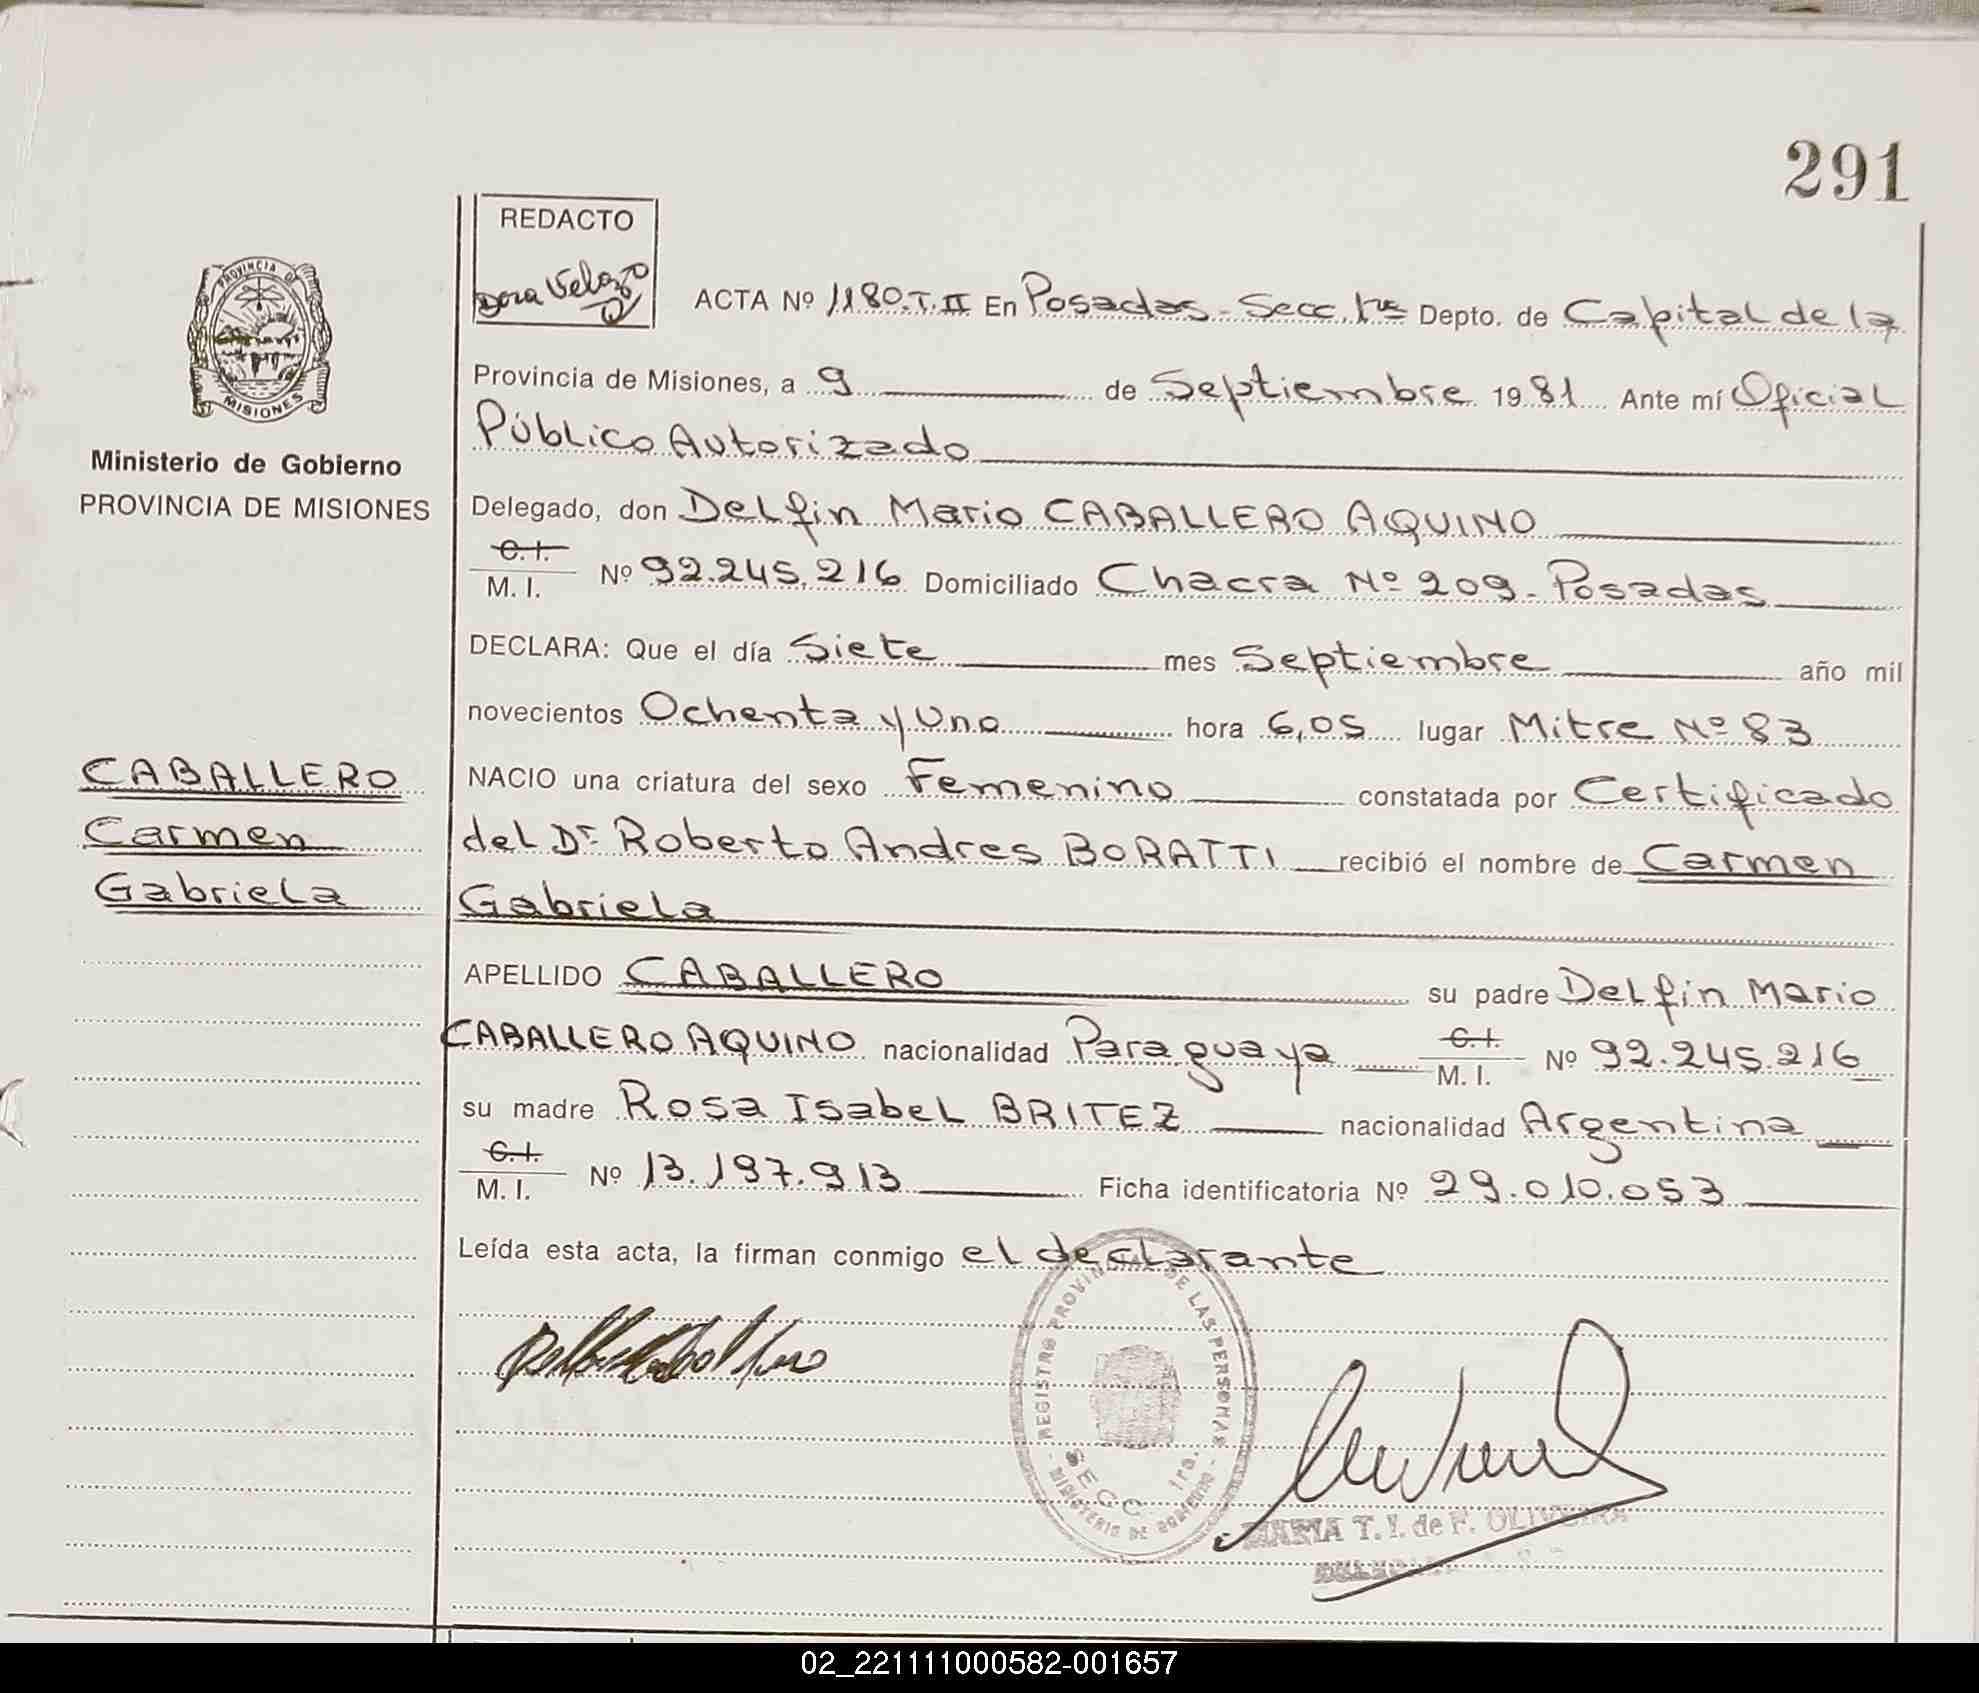 291
REDACTO
Dora Velozo
PROVINCIA DE
MISIONES
ACTA Nº 1180.T.II En Posadas - Secc. 1ra Depto. de Capital de la
Provincia de Misiones, a 9 de Septiembre 1981 Ante mí Oficial
Público Autorizado
Ministerio de Gobierno
PROVINCIA DE MISIONES
Delegado, don Delfin Mario CABALLERO AQUINO
C.I.
M. I. Nº 92.245.216 Domiciliado Chacra Nº 209 - Posadas
DECLARA: Que el día Siete mes Septiembre año mil
novecientos Ochenta y Uno hora 6,05 lugar Mitre Nº 83
CABALLERO
Carmen
Gabriela
NACIO una criatura del sexo Femenino constatada por Certificado
del Dr. Roberto Andres BORATTI recibió el nombre de Carmen
Gabriela
APELLIDO CABALLERO su padre Delfin Mario
CABALLERO AQUINO nacionalidad Paraguaya C.I. M. I. Nº 92.245.216
su madre Rosa Isabel BRITEZ nacionalidad Argentina
C.I.
M. I. Nº 13.197.913 Ficha identificatoria Nº 29.010.053
Leída esta acta, la firman conmigo el declarante
REGISTRO PROVINCIAL DE LAS PERSONAS
SECC. 1ra.
MINISTERIO DE GOBIERNO
MARIA T. I. de F. OLIVEIRA
02_221111000582-001657